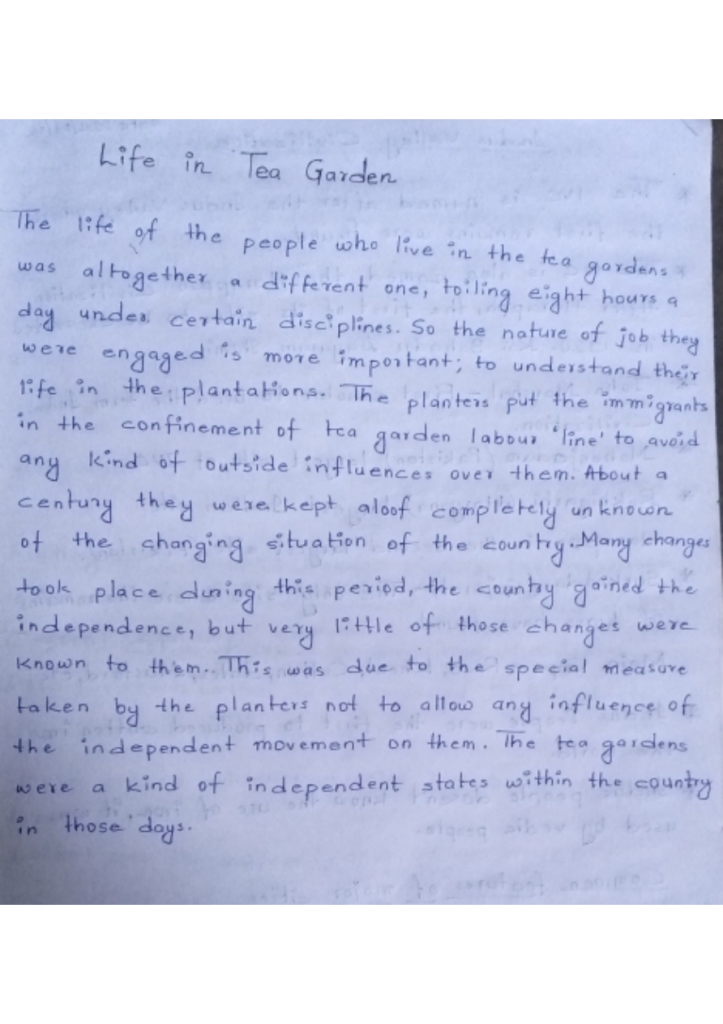 Life in Tea Garden
The life of the people who live in the tea gardens
was altogether a different one, toiling eight hours a
day under certain disciplines. So the nature of job they
were engaged is more important; to understand their
life in the plantations. The planters put the immigrants
in the confinement of tea garden labour 'line' to avoid
any kind of outside influences over them. About a
century they were kept aloof completely unknown
of the changing situation of the country. Many changes
took place during this period, the country gained the
independence, but very little of those changes were
known to them. This was due to the special measure
taken by the planters not to allow any influence of
the independent movement on them. The tea gardens
were a kind of independent states within the country
in those days.